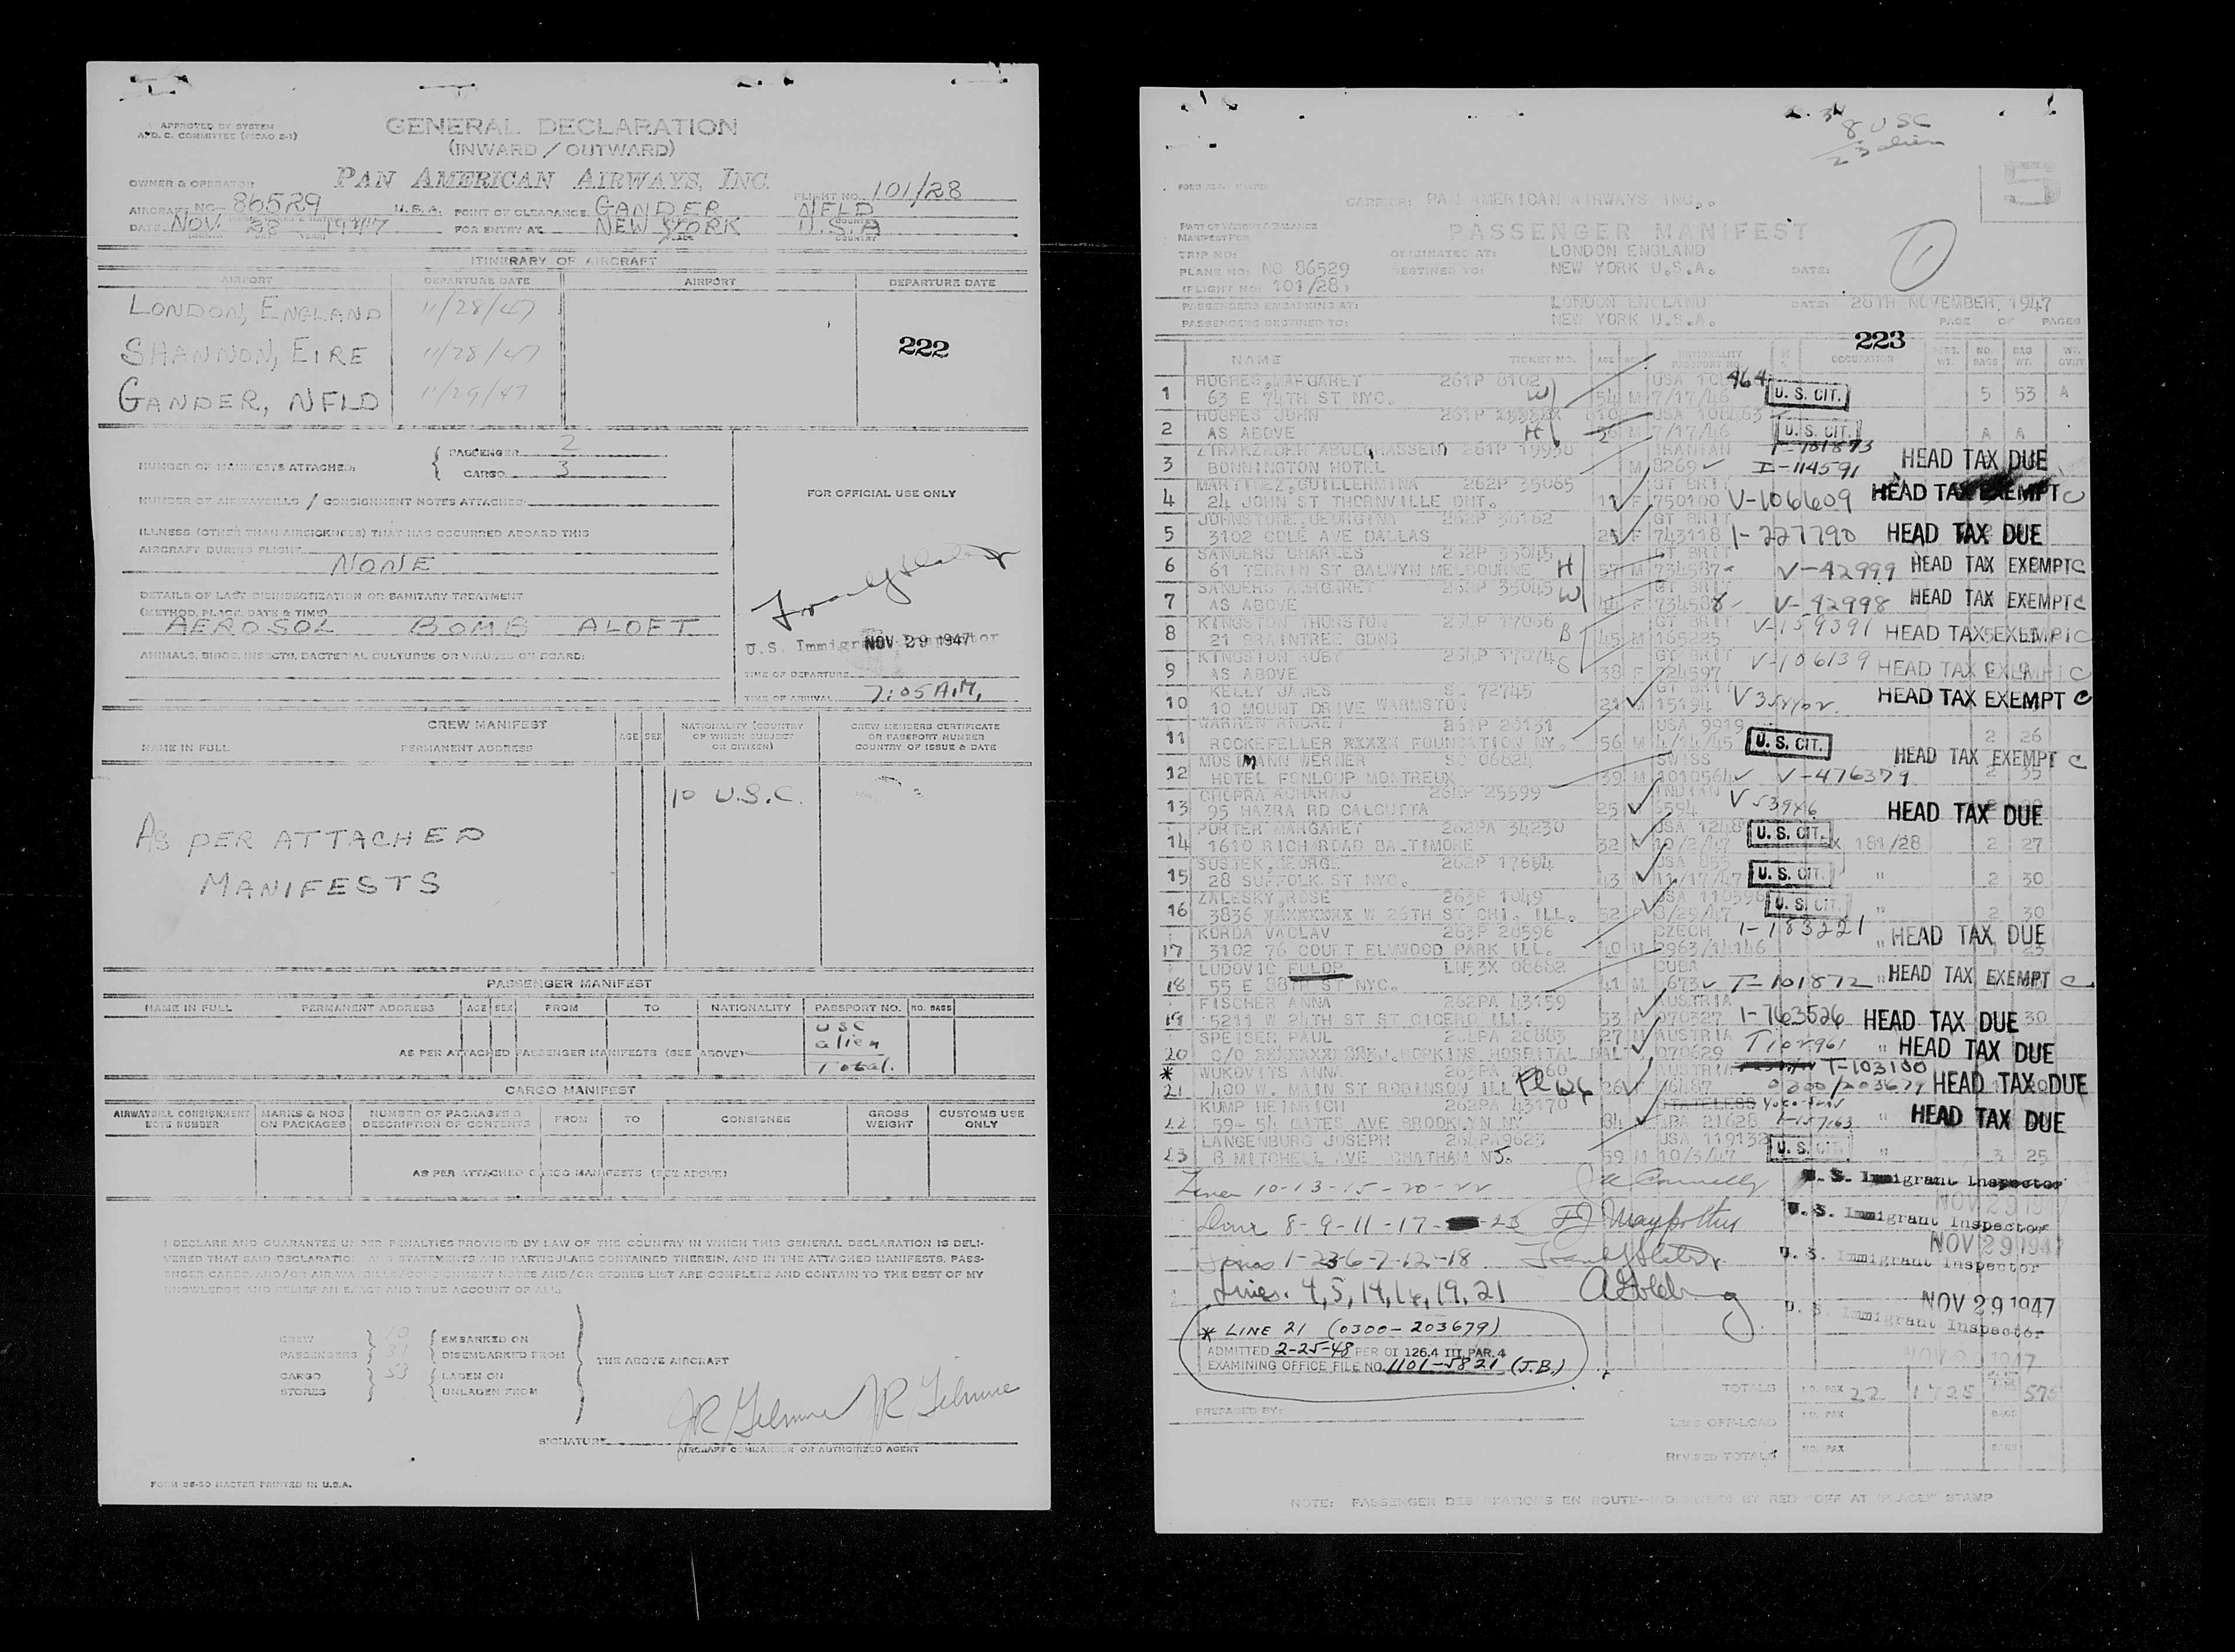 APPROVED BY SYSTEM
GENERAL DECLARATION
(INWARD / OUTWARD)
OWNER & OPERATOR PAN AMERICAN AIRWAYS, INC. FLIGHT NO. 101/28
AIRCRAFT NC- 86529 U.S.A. POINT OF CLEARANCE GANDER NFLD
DATE NOV. 28 1947 FOR ENTRY AT NEW YORK U.S.A
PLACE COUNTRY
ITINERARY OF AIRCRAFT
AIRPORT DEPARTURE DATE AIRPORT DEPARTURE DATE
LONDON, ENGLAND 11/28/47
SHANNON, EIRE 11/28/47
222
GANDER, NFLD 11/29/47
NUMBER OF MANIFESTS ATTACHED: PASSENGER 2
CARGO 3
FOR OFFICIAL USE ONLY
NUMBER OF AIRWAYBILLS / CONSIGNMENT NOTES ATTACHED:
ILLNESS (OTHER THAN AIRSICKNESS) THAT HAS OCCURRED ABOARD THIS
AIRCRAFT DURING FLIGHT
NONE
DETAILS OF LAST DISINSECTIZATION OR SANITARY TREATMENT
(METHOD, PLACE, DATE & TIME)
AEROSOL BOMB ALOFT
U.S. Immigrant Inspector
NOV 29 1947
ANIMALS, BIRDS, INSECTS, BACTERIAL CULTURES OR VIRUSES ON BOARD:
TIME OF DEPARTURE
TIME OF ARRIVAL 7:05 A.M.
CREW MANIFEST
NAME IN FULL PERMANENT ADDRESS AGE SEX NATIONALITY (COUNTRY OF WHICH SUBJECT OR CITIZEN) CREW MEMBERS CERTIFICATE OR PASSPORT NUMBER COUNTRY OF ISSUE & DATE
10 U.S.C.
AS PER ATTACHED
MANIFESTS
PASSENGER MANIFEST
NAME IN FULL PERMANENT ADDRESS AGE SEX FROM TO NATIONALITY PASSPORT NO. NO. BAGS
USC
alien
AS PER ATTACHED PASSENGER MANIFESTS (SEE ABOVE)
Total.
CARGO MANIFEST
AIRWAYBILL CONSIGNMENT NOTE NUMBER MARKS & NOS ON PACKAGES NUMBER OF PACKAGES & DESCRIPTION OF CONTENTS FROM TO CONSIGNEE GROSS WEIGHT CUSTOMS USE ONLY
AS PER ATTACHED CARGO MANIFESTS (SEE ABOVE)
I DECLARE AND GUARANTEE UNDER PENALTIES PROVIDED BY LAW OF THE COUNTRY IN WHICH THIS GENERAL DECLARATION IS DELI-
VERED THAT SAID DECLARATION AND STATEMENTS AND PARTICULARS CONTAINED THEREIN, AND IN THE ATTACHED MANIFESTS, PASS-
ENGER CARGO, AND/OR AIR WAYBILLS/CONSIGNMENT NOTES AND/OR STORES LIST ARE COMPLETE AND CONTAIN TO THE BEST OF MY
KNOWLEDGE AND BELIEF AN EXACT AND TRUE ACCOUNT OF ALL:
CREW 10 EMBARKED ON
PASSENGERS 31 DISEMBARKED FROM
THE ABOVE AIRCRAFT
CARGO 53 LADEN ON
STORES UNLADEN FROM
SIGNATURE
AIRCRAFT COMMANDER OR AUTHORIZED AGENT
FORM MASTER PRINTED IN U.S.A.
8 USC
23 alien
CARRIER: PAN AMERICAN AIRWAYS INC.
PASSENGER MANIFEST
PART OF WEIGHT & BALANCE
MANIFEST FOR
TRIP NO: ORIGINATED AT: LONDON ENGLAND
PLANE NO: NC 86529 DESTINED TO: NEW YORK U.S.A. DATE:
(FLIGHT NO: 101/28)
1
PASSENGERS EMBARKING AT: LONDON ENGLAND DATE: 28TH NOVEMBER, 1947
PASSENGERS DESTINED TO: NEW YORK U.S.A. PAGE OF PAGES
223
NAME TICKET NO. AGE SEX NATIONALITY OCCUPATION PERS. WT. NO. BAGS BAG WT. WT. OVER
1 HUGHES, MARGARET 261P 8102 W USA 464
63 E 74TH ST NYC. 54 M 7/17/46 U. S. CIT. 5 53 A
2 HUGHES JOHN 261P H USA 108463
AS ABOVE M 7/17/46 U. S. CIT. A A
3 261P 19938 IRANIAN T-101873
BONNINGTON HOTEL M 8269 I-114591 HEAD TAX DUE
4 MARTINEZ, GUILLERMINA 262P 35065 GT BRIT
24 JOHN ST THORNVILLE ONT. 11 F 750100 V-106609 HEAD TAX EXEMPT C
5 JOHNSTONE, GEORGINA 262P 36162 GT BRIT
3102 COLE AVE DALLAS F 743118 1-227790 HEAD TAX DUE
6 SANDERS CHARLES 262P 35045 GT BRIT
61 TERRIN ST BALWYN MELBOURNE H 57 M 734587 V-42999 HEAD TAX EXEMPT C
7 SANDERS MARGARET 262P 35045 W GT BRIT
AS ABOVE F 734588 V-42998 HEAD TAX EXEMPT C
8 KINGSTON THURSTON 261P 17066 B GT BRIT
21 BRAINTREE GDNS 45 M 165225 V-159391 HEAD TAX EXEMPT C
9 KINGSTON RUBY 261P 17074 S GT BRIT
AS ABOVE 38 F 724597 V-106139 HEAD TAX EXEMPT C
10 KELLY JAMES SC 72745 GT BRIT
10 MOUNT DRIVE WARMSTON 21 M 15194 HEAD TAX EXEMPT C
11 WARREN ANDREW 261P 20131 USA 9919
ROCKEFELLER XXXXX FOUNDATION NY. 56 M 4/14/45 U. S. CIT. 2 26
12 MOSIMANN WERNER SC 06824 SWISS HEAD TAX EXEMPT C
HOTEL FONLOUP MONTREUX 39 M 1010564 V-476379 2 35
13 CHOPRA ACHARAJ 261P 25599 INDIAN V 53946
95 HAZRA RD CALCUTTA 25 6594 HEAD TAX DUE
14 PORTER MARGARET 262PA 34230 USA 1248
1610 RICH ROAD BALTIMORE 32 10/2/47 U. S. CIT. 181/28 2 27
15 SUSTEK, GEORGE 262P 17664 USA 855
28 SUFFOLK ST NYC. 43 M 11/17/47 U. S. CIT. " 2 30
16 ZALESKY, ROSE 263P 1049 USA 110596
3836 XXXXXXXX W 26TH ST CHI. ILL. 52 F 8/29/47 U. S. CIT. " 2 30
17 KORDA VACLAV 263P 28596 CZECH 1-183221
3102 76 COURT ELMWOOD PARK ILL. 40 M 2963/14146 " HEAD TAX DUE
18 LUDOVIC FULOP LN53X 08682 CUBA
55 E 88TH ST NYC. 41 M 673 T-101872 " HEAD TAX EXEMPT C
19 FISCHER ANNA 262PA 43159 AUSTRIA
5211 W 24TH ST ST CICERO ILL. 53 F 070327 1-763526 HEAD TAX DUE 30
20 SPEISER PAUL 20883 27 M AUSTRIA
C/O J.HOPKINS HOSPITAL BAL 070629 T102961 " HEAD TAX DUE
* WUKOVITS ANNA AUSTRIA T-103180
21 400 W. MAIN ST ROBINSON ILL 26 F 76487 0300/203679 HEAD TAX DUE
22 KUMP HEINRICH 262PA 43170 STATELESS
59-54 GATES AVE BROOKLYN NY 84 21628 1-157163 " HEAD TAX DUE
23 LANGENBURG JOSEPH USA 119132
8 MITCHELL AVE CHATHAM NJ. 59 M 10/3/47 U. S. CIT. " 3 25
Lines 10-13-15-20-22 U. S. Immigrant Inspector
NOV 29 1947
Lines 8-9-11-17- -23 U. S. Immigrant Inspector
NOV 29 1947
Lines 1-2-3-6-7-12-18 U. S. Immigrant Inspector
Lines. 4, 5, 14, 16, 19, 21
NOV 29 1947
U. S. Immigrant Inspector
NOV 29 1947
* LINE 21 (0300-203679)
ADMITTED 2-25-48 PER OI 126.4 III PAR. 4
EXAMINING OFFICE FILE NO. 1101-5821 (J.B.)
TOTALS NO. PAX 22 1725 575
PREPARED BY:
LESS OFF-LOAD NO. PAX BAGS
REVISED TOTALS NO. PAX BAGS
NOTE: PASSENGER DESTINATIONS EN ROUTE—INDICATED BY RED "OFF AT (PLACE)" STAMP